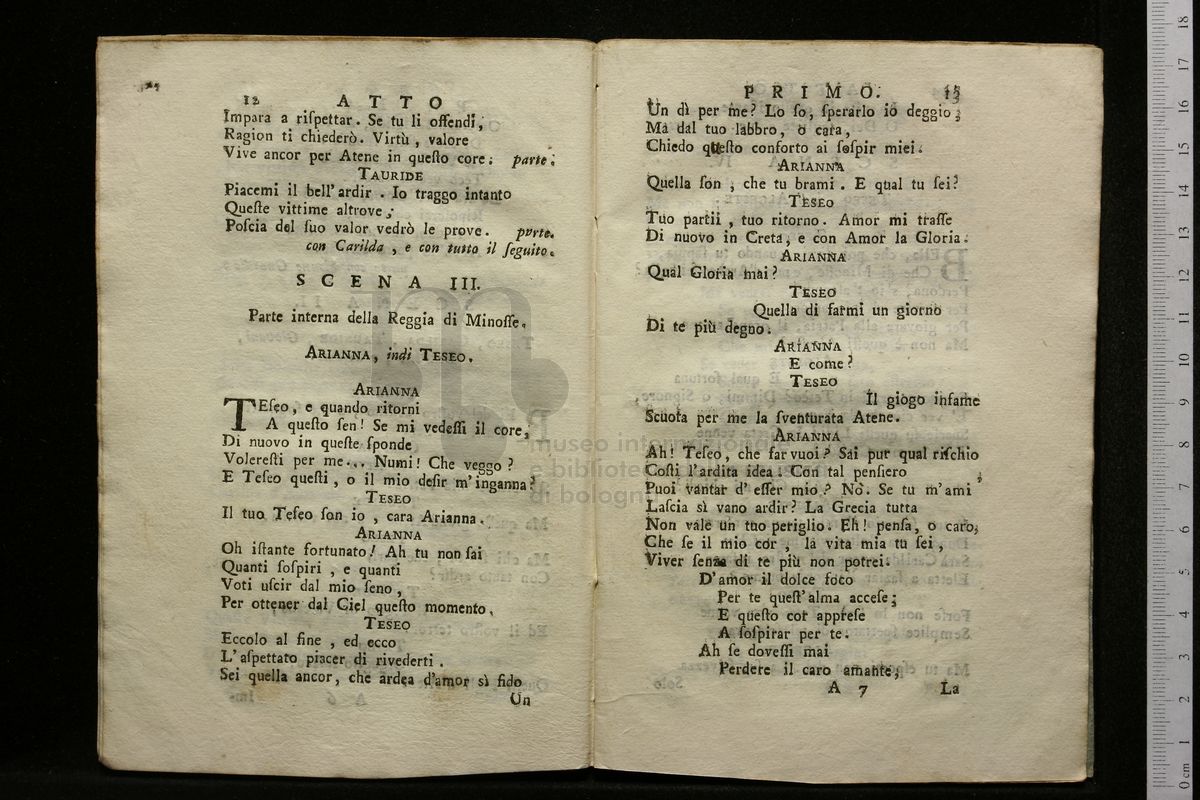 12 ATTO
Impara a riſpettar. Se tu li offendi,
Ragion ti chiederò. Virtù, valore
Vive ancor per Atene in queſto core. parte.
TAURIDE
Piacemi il bell'ardir. Io traggo intanto
Queſte vittime altrove;
Poſcia del ſuo valor vedrò le prove. parte.
con Carilda, e con tutto il ſeguito.
SCENA III.
Parte interna della Reggia di Minoſſe.
ARIANNA, indi TESEO.
ARIANNA
TEſeo, e quando ritorni
A queſto ſen! Se mi vedeſſi il core,
Di nuovo in queſte ſponde
Volereſti per me... Numi! Che veggo?
E Teſeo queſti, o il mio deſir m'inganna?
TESEO
Il tuo Teſeo ſon io, cara Arianna.
ARIANNA
Oh iſtante fortunato! Ah tu non ſai
Quanti ſoſpiri, e quanti
Voti uſcir dal mio ſeno,
Per ottener dal Ciel queſto momento.
TESEO
Eccolo al fine, ed ecco
L'aſpettato piacer di rivederti.
Sei quella ancor, che ardea d'amor sì fido
Un
PRIMO.
Un dì per me? Lo ſo, ſperarlo io deggio;
Ma dal tuo labbro, o cara,
Chiedo queſto conforto ai ſoſpir miei.
ARIANNA
Quella ſon, che tu brami. E qual tu ſei?
TESEO
Tuo partii, tuo ritorno. Amor mi traſſe
Di nuovo in Creta, e con Amor la Gloria.
ARIANNA
Qual Gloria mai?
TESEO
Quella di farmi un giorno
Di te più degno.
ARIANNA
E come?
TESEO
Il giogo infame
Scuota per me la ſventurata Atene.
ARIANNA
Ah! Teſeo, che far vuoi? Sai pur qual riſchio
Coſti l'ardita idea? Con tal penſiero
Puoi vantar d'eſſer mio? Nò. Se tu m'ami,
Laſcia sì vano ardir? La Grecia tutta
Non vale un tuo periglio. Eh! penſa, o caro,
Che ſe il mio cor, la vita mia tu ſei,
Viver ſenza di te più non potrei.
D'amor il dolce foco
Per te queſt'alma acceſe;
E queſto cor appreſe
A ſoſpirar per te.
Ah ſe doveſſi mai
Perdere il caro amante,
A 7 La
museo internazionale
e biblioteca
di bologna
0 cm 1 2 3 4 5 6 7 8 9 10 11 12 13 14 15 16 17 18